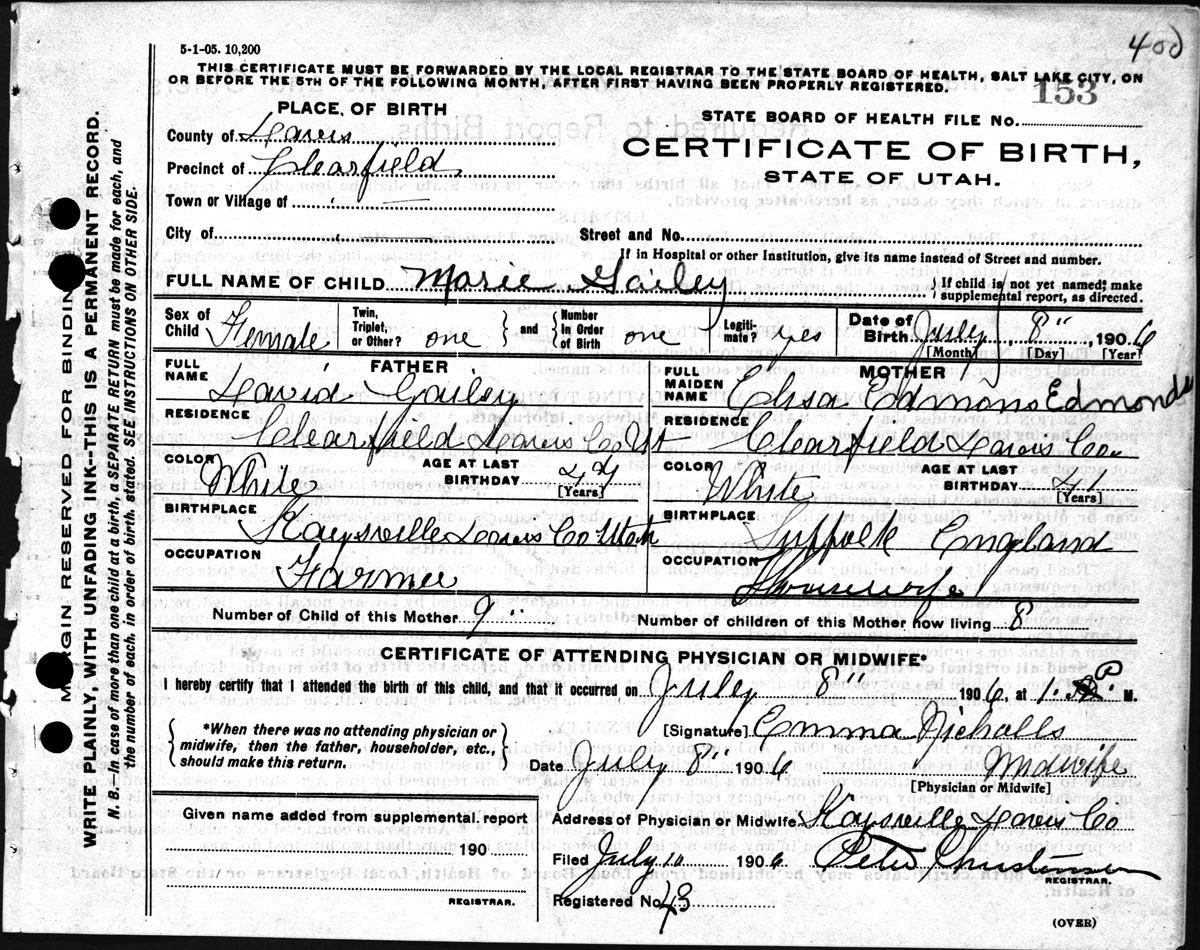 400
5-1-05. 10,200
THIS CERTIFICATE MUST BE FORWARDED BY THE LOCAL REGISTRAR TO THE STATE BOARD OF HEALTH, SALT LAKE CITY, ON
OR BEFORE THE 5TH OF THE FOLLOWING MONTH, AFTER FIRST HAVING BEEN PROPERLY REGISTERED.
153
PLACE OF BIRTH
STATE BOARD OF HEALTH FILE NO.
County of Davis
CERTIFICATE OF BIRTH,
Precinct of Clearfield
STATE OF UTAH.
Town or Village of —
City of Street and No.
If in Hospital or other Institution, give its name instead of Street and number.
FULL NAME OF CHILD Marie Gailey { If child is not yet named; make supplemental report, as directed.
Sex of Child Female Twin, Triplet, or Other? one } and { Number in Order of Birth one Legitimate? yes Date of Birth July 8", 1906
[Month] [Day] [Year]
FATHER MOTHER
FULL NAME David Gailey FULL MAIDEN NAME Elisa Edmons Edmonds
RESIDENCE Clearfield Davis Co Ut RESIDENCE Clearfield Davis Co
COLOR White AGE AT LAST BIRTHDAY 47 [Years] COLOR White AGE AT LAST BIRTHDAY 41 [Years]
BIRTHPLACE Kaysville Davis Co Utah BIRTHPLACE Suffolk England
OCCUPATION Farmer OCCUPATION Housewife
Number of Child of this Mother 9" Number of children of this Mother now living 8
CERTIFICATE OF ATTENDING PHYSICIAN OR MIDWIFE*
I hereby certify that I attended the birth of this child, and that it occurred on July 8" 1906 at 1: P M.
{ *When there was no attending physician or midwife, then the father, householder, etc., should make this return. }
[Signature] Emma Nicholls
Date July 8" 1906 Midwife
[Physician or Midwife]
Given name added from supplemental report
190
REGISTRAR.
Address of Physician or Midwife Kaysville Davis Co
Filed July 10 1906 Peter Christensen
REGISTRAR.
Registered No. 43
(OVER)
MARGIN RESERVED FOR BINDING
WRITE PLAINLY, WITH UNFADING INK--THIS IS A PERMANENT RECORD.
N. B.—In case of more than one child at a birth, a SEPARATE RETURN must be made for each, and
the number of each, in order of birth, stated. SEE INSTRUCTIONS ON OTHER SIDE.